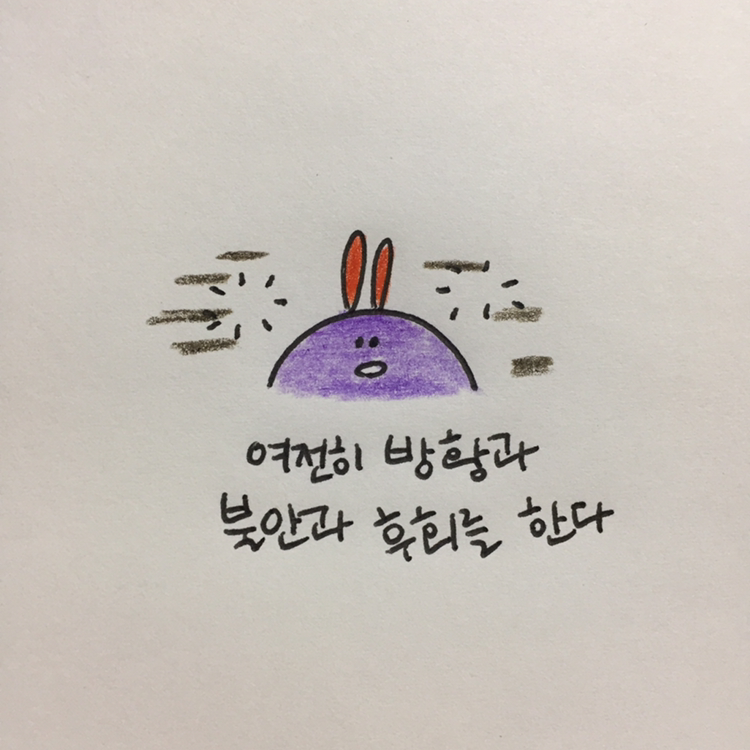 여전히 방황과
불안과 후회를 한다